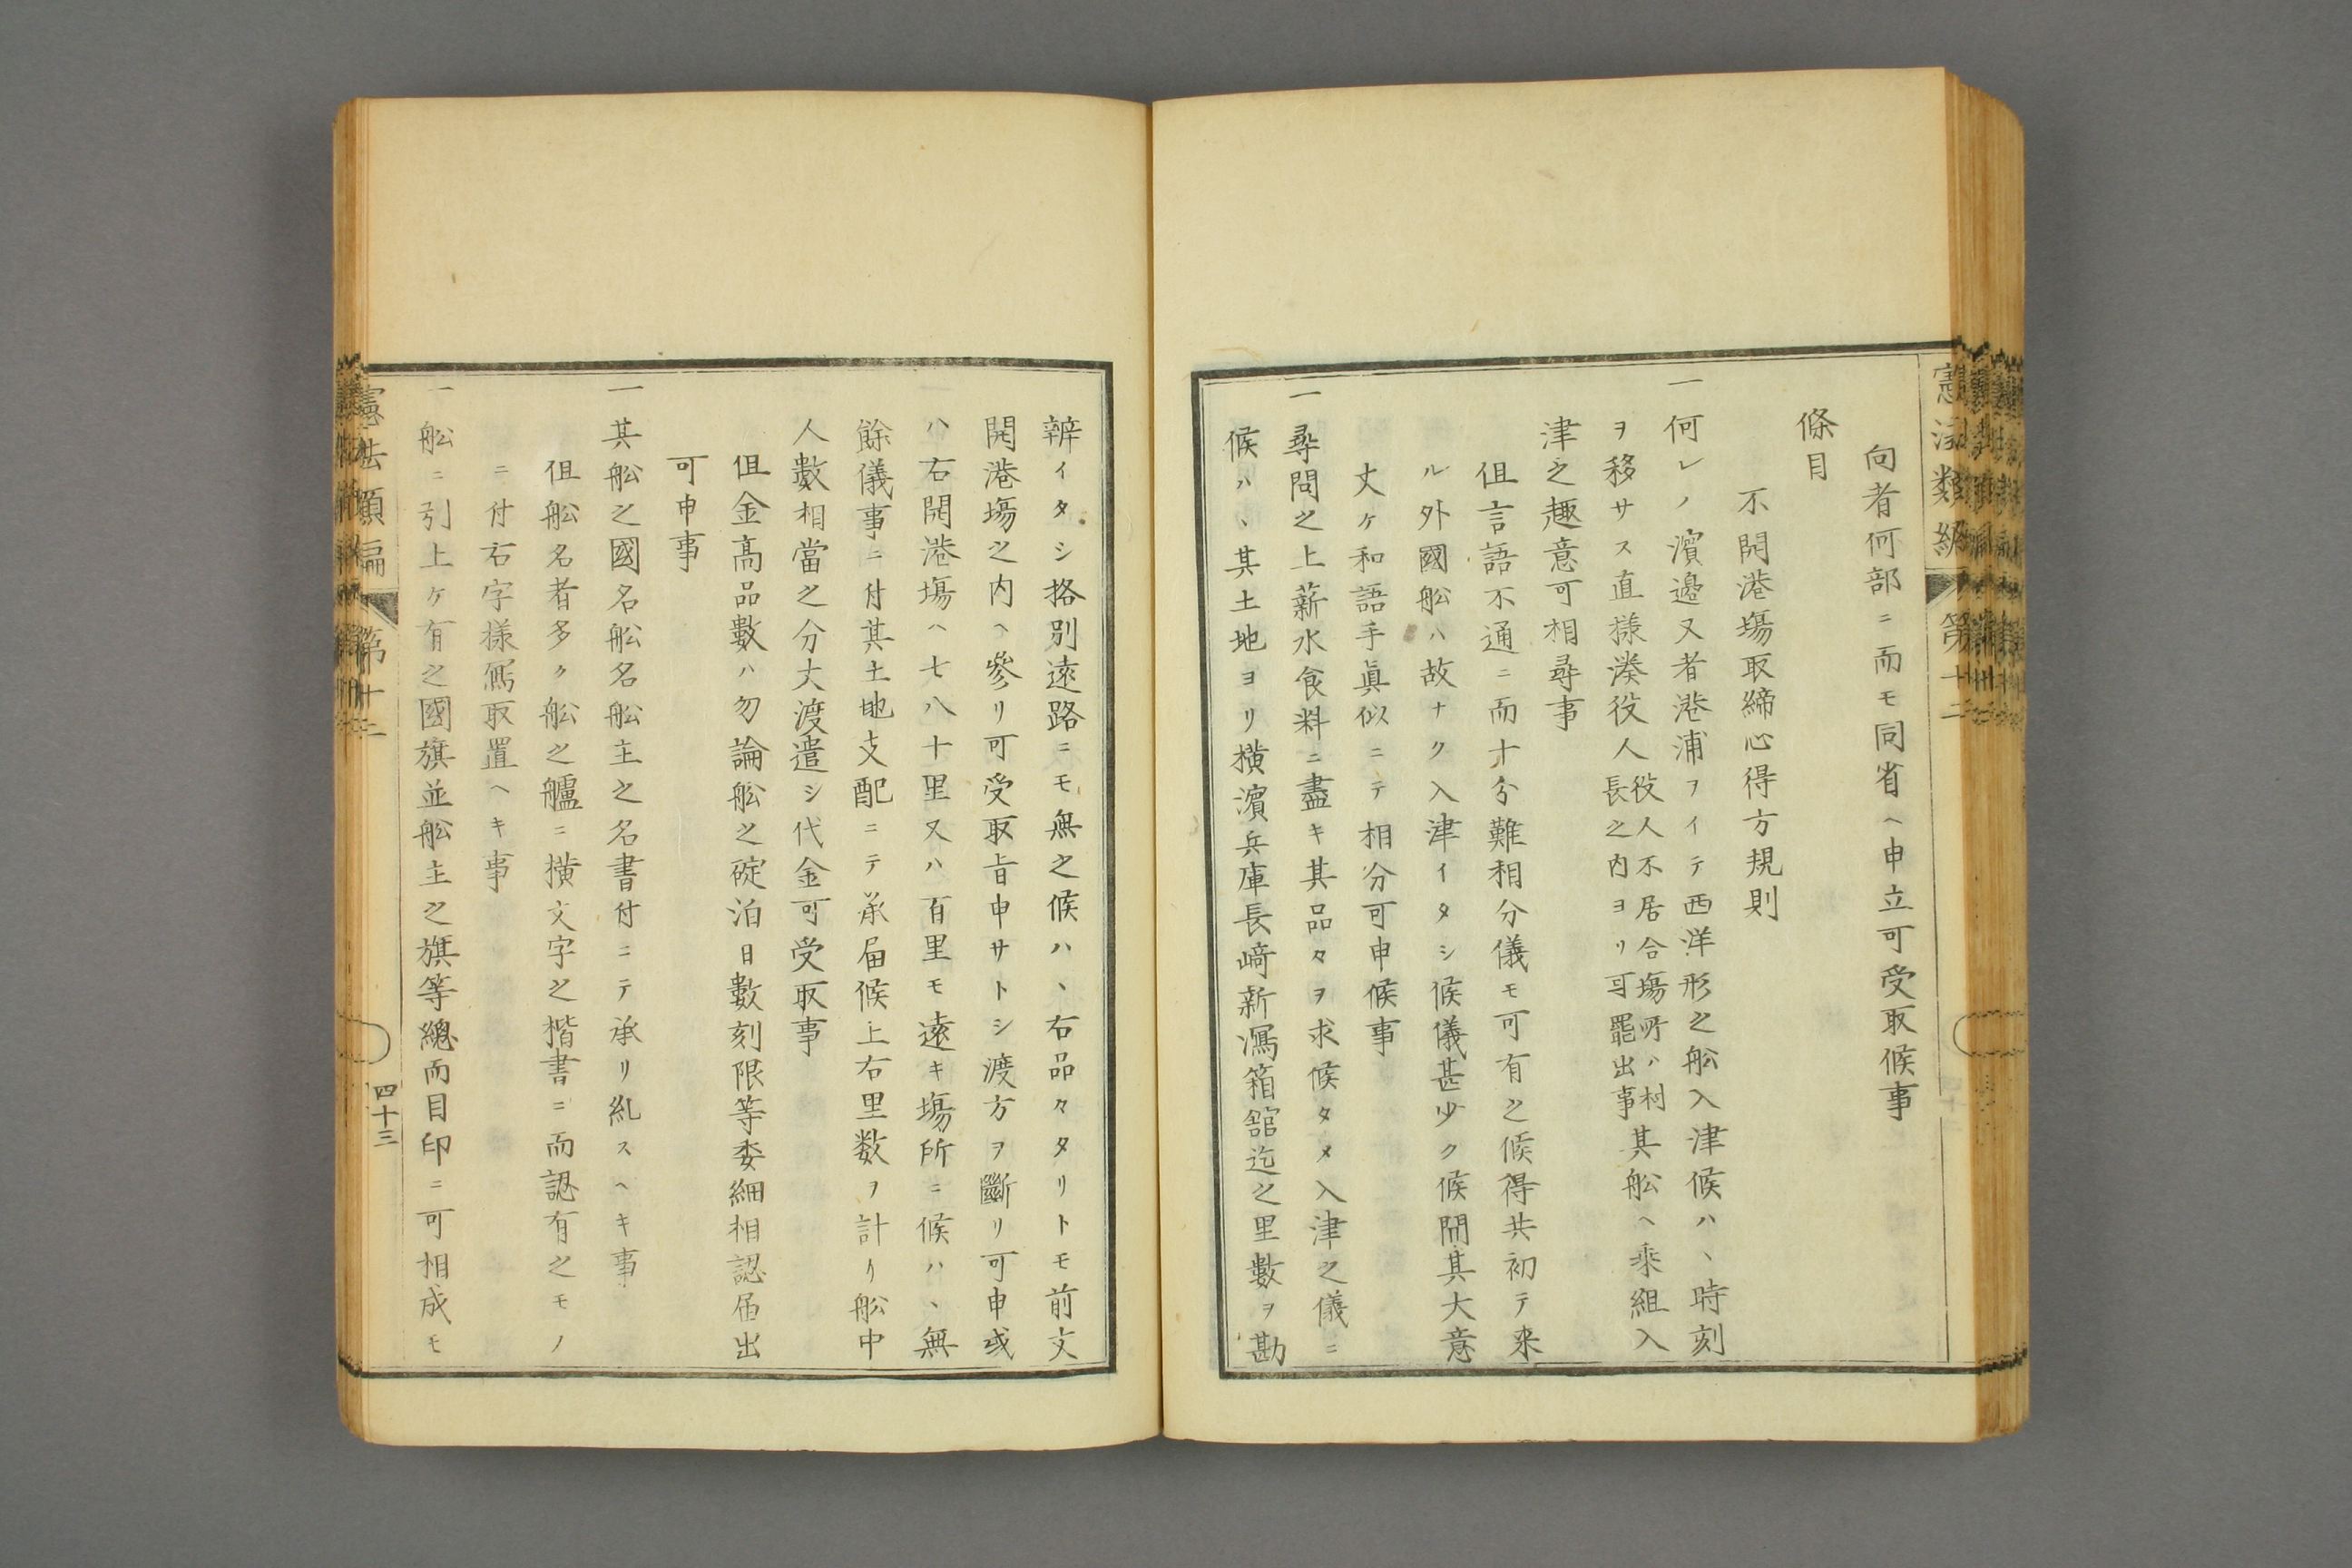 向者何部ニ而モ同省ヘ申立可受取候事
條目
不開港塲取締心得方規則
一何レノ濱邉又者港浦ヲイテ西洋形之舩入津候ハヽ時刻
ヲ移サス直樣湊役人役人不居合塲所ハ村長之内ヨリ可罷出事其舩ヘ乘組入
津之趣意可相尋事
但言語不通ニ而十分難相分儀モ可有之候得共初テ来
ル外國舩ハ故ナク入津イタシ候儀甚少ク候間其大意
丈ケ和語手眞似ニテ相分可申候事
一尋問之上薪水食料ニ盡キ其品々ヲ求候タメ入津之儀ニ
候ハヽ其土地ヨリ横濱兵庫長崎新潟箱舘迄之里數ヲ勘
辨イタシ格別遠路ニモ無之候ハヽ右品々タリトモ前文
開港塲之内ヘ參リ可受取旨申サトシ渡方ヲ斷リ可申或
ハ右開港塲ヘ七八十里又ハ百里モ遠キ塲所ニ候ハヽ無
餘儀事ニ付其土地支配ニテ承届候上右里数ヲ計リ舩中
人數相當之分丈渡遣シ代金可受取事
但金高品數ハ勿論舩之碇泊日數刻限等委細相認届出
可申事
一其舩之國名舩名舩主之名書付ニテ承リ糺スヘキ事
但舩名者多ク舩之艫ニ横文字之楷書ニ而認有之モノ
ニ付右字樣寫取置ヘキ事
一舩ニ引上ケ有之國旗並舩主之旗等總而目印ニ可相成モ
憲法類編
第十二
四十三